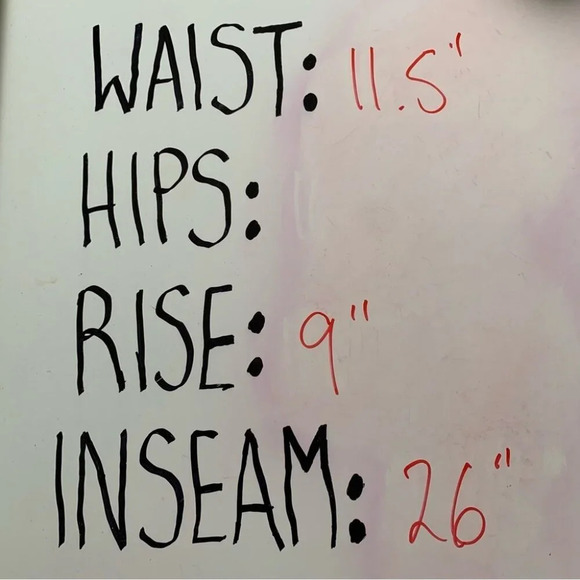 WAIST: 11.5"
HIPS:
RISE: 9"
INSEAM: 26"